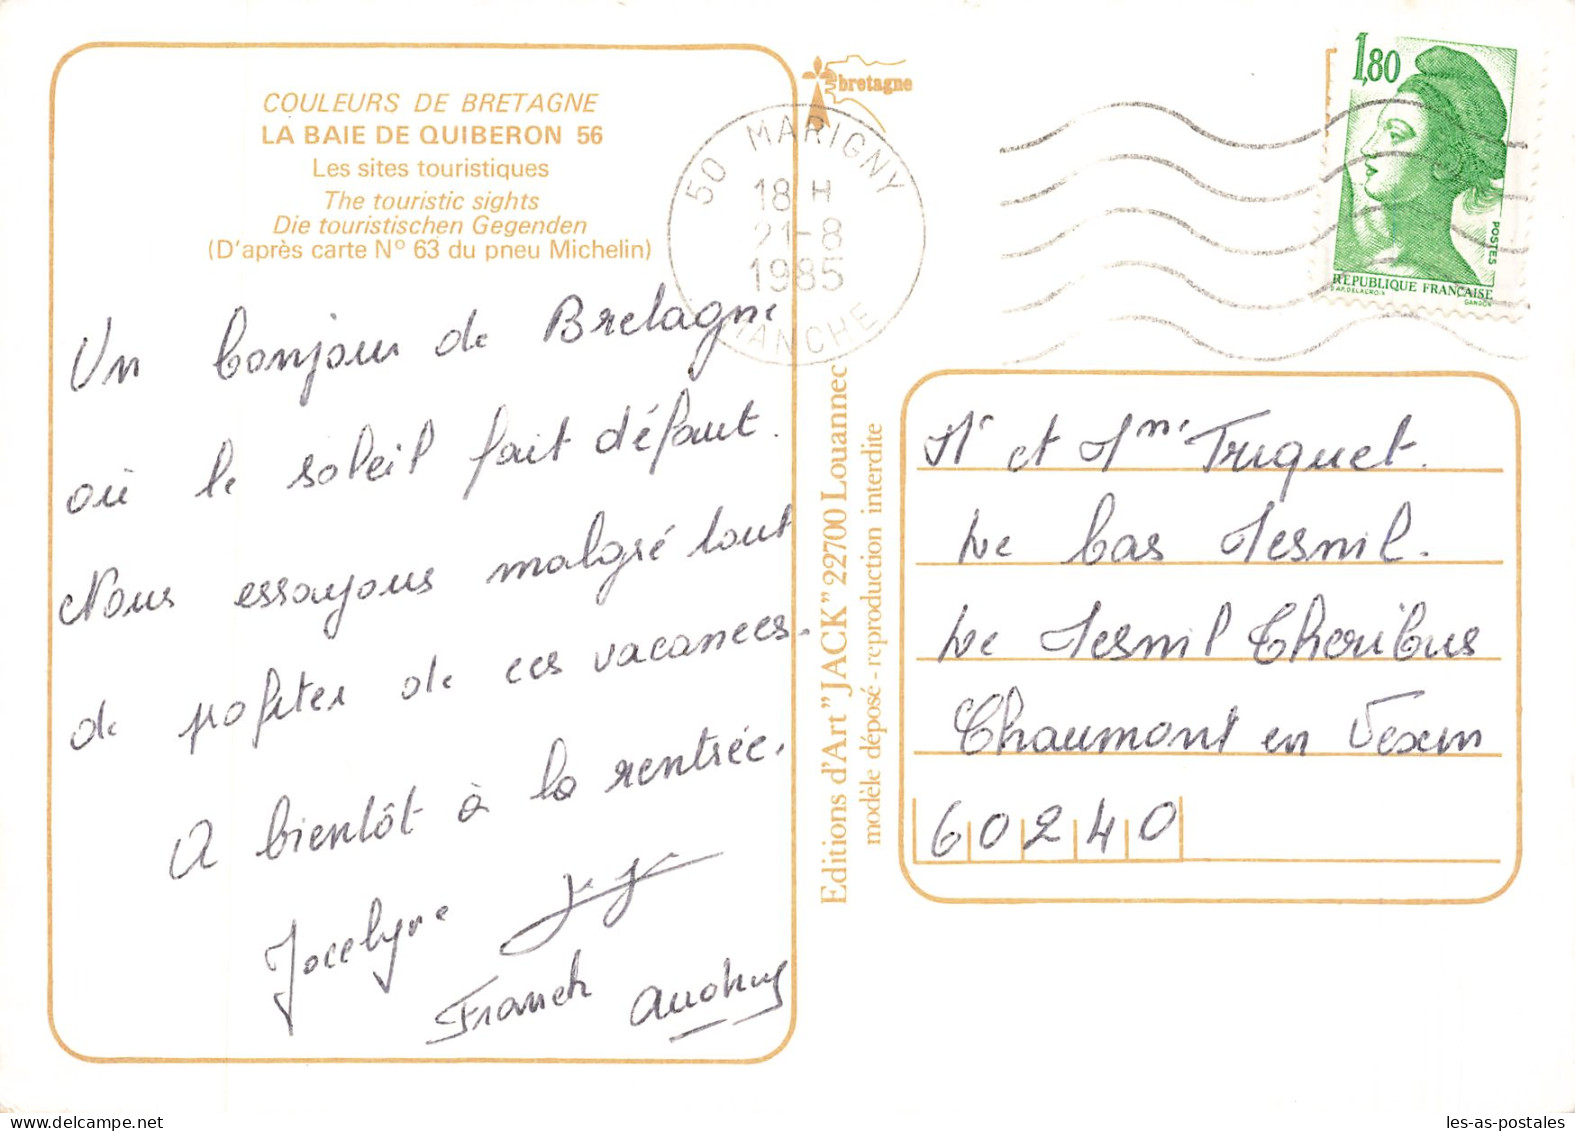 COULEURS DE BRETAGNE
LA BAIE DE QUIBERON 56
Les sites touristiques
The touristic sights
Die touristischen Gegenden
(D'après carte N° 63 du pneu Michelin)
Un bonjour de Bretagne
où le soleil fait défaut.
Nous essayons malgré tout
de profiter de ces vacances.
A bientôt à la rentrée.
Jocelyne
Franck Audrey
bretagne
50 MARIGNY
18 H
21-8
1985
MANCHE
1,80
POSTES
RÉPUBLIQUE FRANÇAISE
D'AP. DELACROIX GANDON
Editions d'Art "JACK" 22700 Louannec
modèle déposé - reproduction interdite
Mr et Mme Truquet.
Le bas Mesnil.
Le Mesnil Theribus
Chaumont en Vexin
60240
les-as-postales